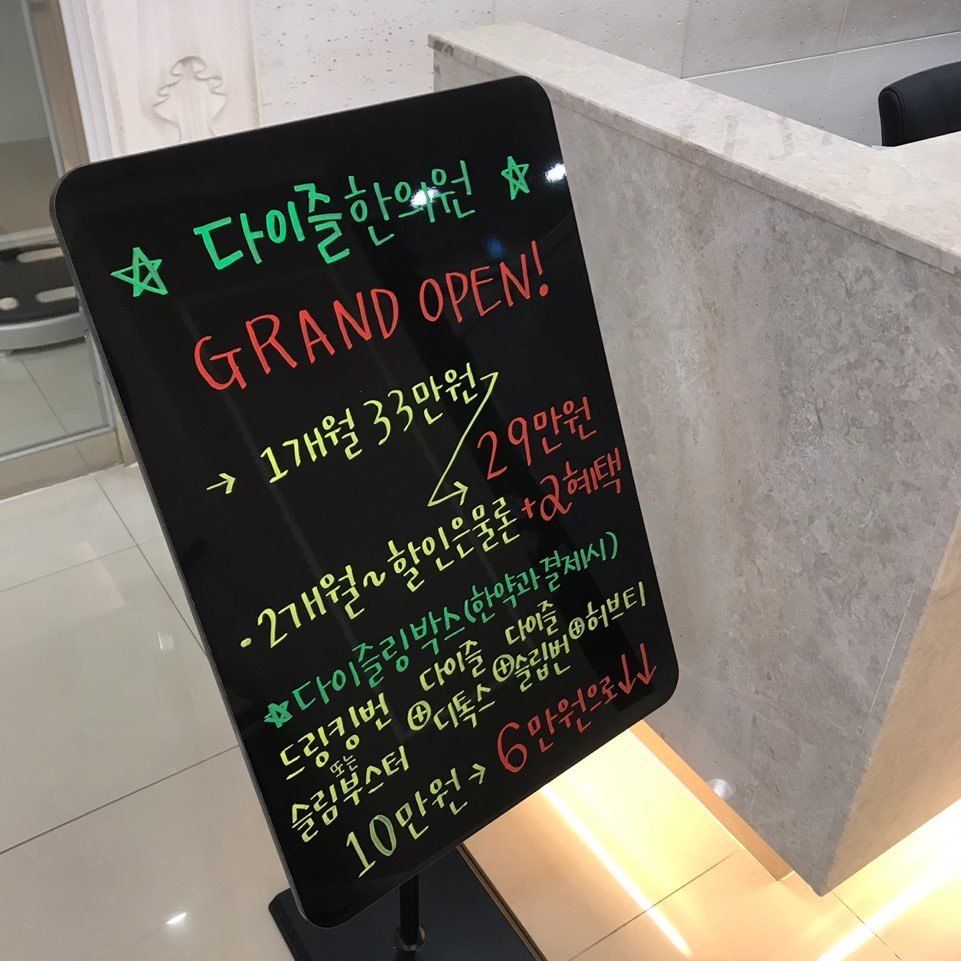 ☆ 다이즐한의원 ☆
GRAND OPEN!
→ 1개월 33만원
→ 29만원
· 2개월~할인은물론 +2혜택
☆다이즐링박스(한약과결제시)
드링킹번 또는 슬림부스터 ⊕ 다이즐 디톡스 ⊕ 다이즐 슬립번 ⊕ 허브티
10만원→ 6만원으로↓↓